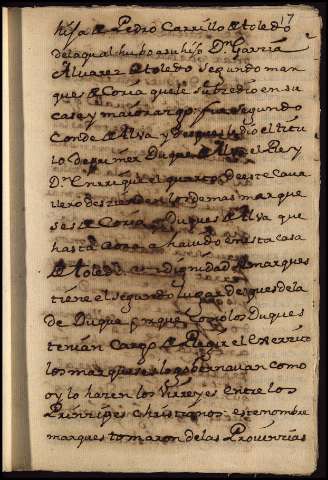 17
hija de Pedro Carrillo de toledo
de la qual hubo a su hijo D.n Garcia
Alvarez de toledo segundo mar
ques de Coria que le subzedio en su
casa y maiorazgo. fue segundo
Conde de Alva y despues le dio el titu
lo de primer Duque de Alva el Rey
D.n Enrrique el quarto. de este Cava
llero deszienden los demas marque
ses de Coria y Duques de Alva que
hasta aora a havido en esta casa
de toledo. esta dignidad de marques
tiene el segundo lugar despues de la
de Duque porque como los Duques
tenian Cargo de Regir el exerzito
los marqueses lo governavan como
oy lo hazen los Virreyes entre los
Prinzipes christianos. este nombre
marques tomaron de las Provinzias